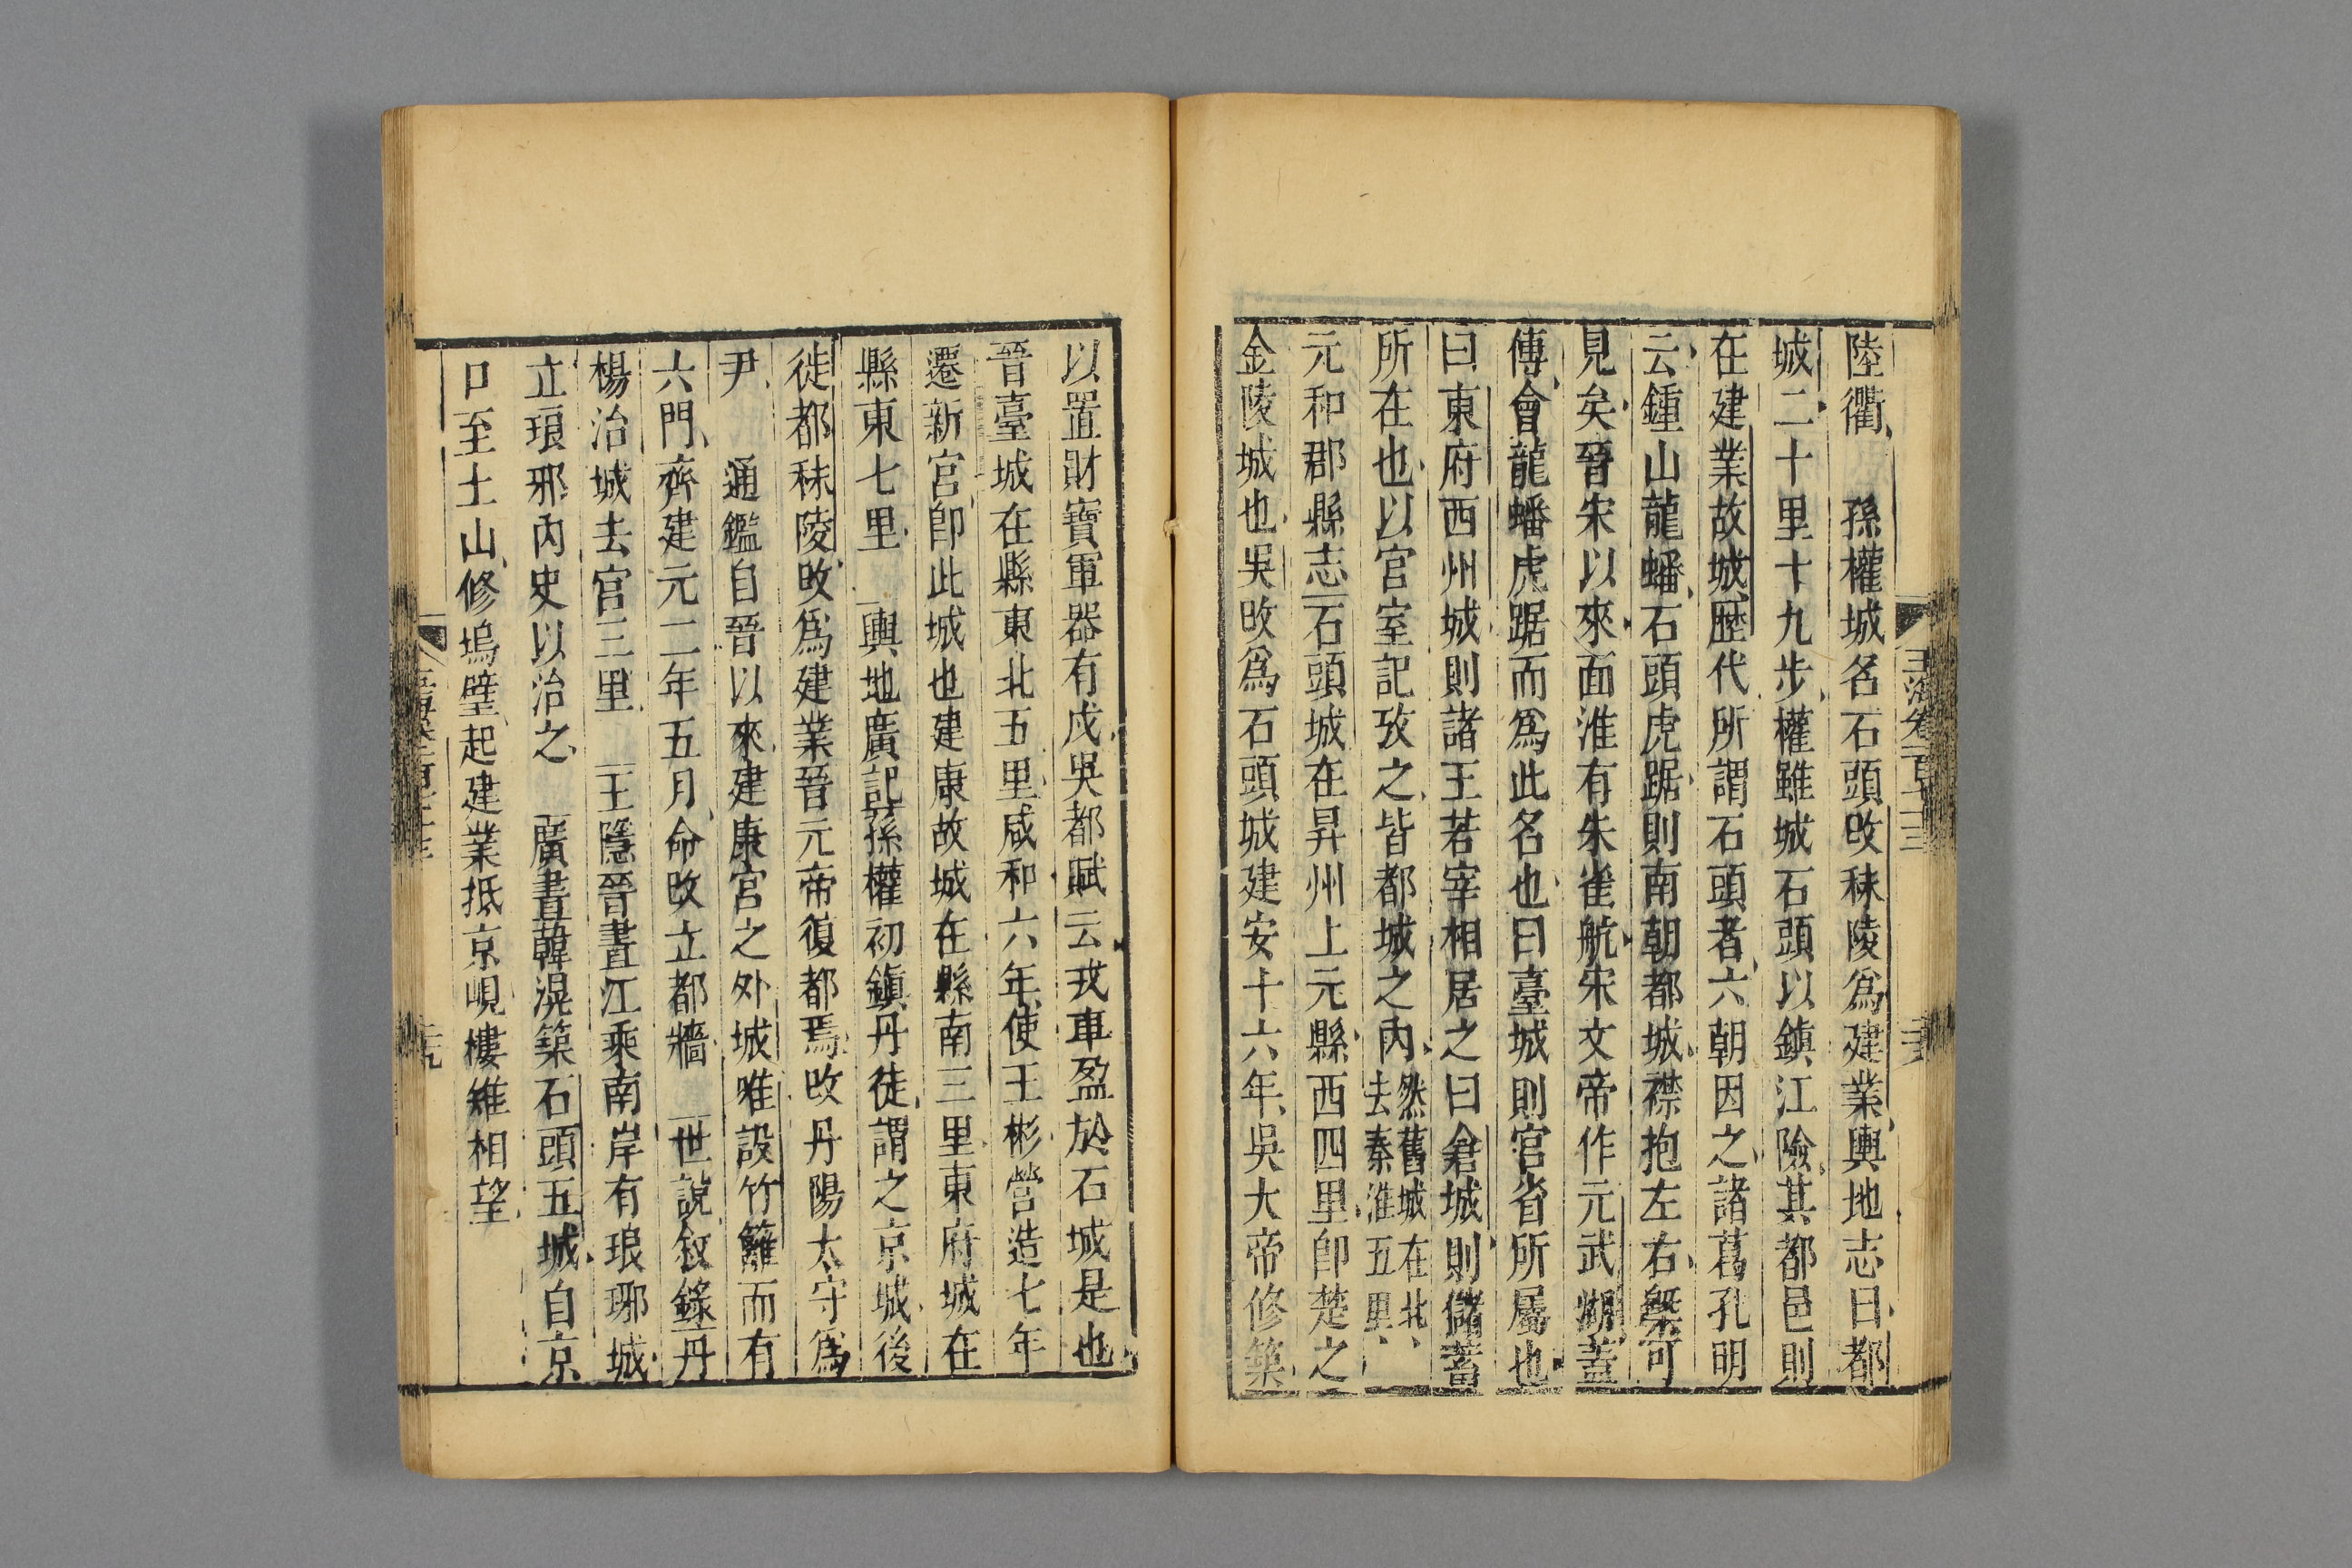 陸衢　孫權城名石頭改秣陵爲建業輿地志曰都
城二十里十九步權雖城石頭以鎮江險其都邑則
在建業故城歷代所謂石頭者六朝因之諸葛孔明
云鍾山龍蟠石頭虎踞則南朝都城襟抱左右槩可
見矣晉宋以來面淮有朱雀航宋文帝作元武湖蓋
傅會龍蟠虎踞而爲此名也曰臺城則官省所屬也
曰東府西州城則諸王若宰相居之曰倉城則儲蓄
所在也以官室記攷之皆都城之內然舊城在北去秦淮五里
元和郡縣志石頭城在昇州上元縣西四里卽楚之
金陵城也吳改爲石頭城建安十六年吳大帝修築
以置財寶軍器有戍吳都賦云戎車盈於石城是也
晉臺城在縣東北五里咸和六年使王彬營造七年
遷新宮卽此城也建康故城在縣南三里東府城在
縣東七里　輿地廣記孫權初鎮丹徒謂之京城後
徙都秣陵改爲建業晉元帝復都焉改丹陽太守爲
尹　通鑑自晉以來建康宮之外城唯設竹籬而有
六門齊建元二年五月命改立都牆　世說敘錄丹
楊治城去宮三里　王隱晉書江乘南岸有琅琊城
立琅邪內史以治之　唐書韓滉築石頭五城自京
口至土山修塢壁起建業抵京峴樓雉相望